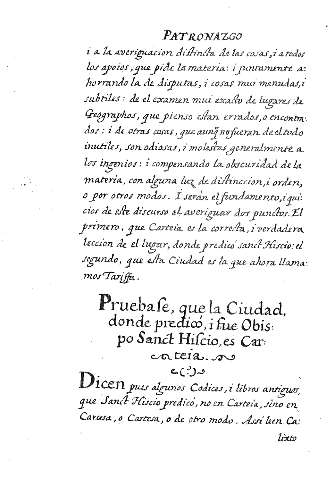 PATRONAZGO
i a la averiguacion distincta de las casas, i a todos
los apoios, que pide la materia: i juntamente a:
horrando la de disputas, i cosas mui menudas, i
subtiles: de el examen mui exacto de lugares de
Geographos, que pienso estan errados, o encontra
dos: i de otras cosas, que aunq̃ no fueran de el todo
inutiles, son odiosas, i molestas generalmente a
los ingenios: i compensando la obscuridad de la
materia, con alguna luz de distinccion, i orden,
o por otros modos. I serán el fundamento, i qui
cios de este discurso al averiguar dos punctos. El
primero, que Carteia es la correcta, i verdadera
leccion de el lugar, donde predicó sanct Hiscio: el
segundo, que esta Ciudad es la que ahora llama
mos Tariffa.
Pruebase, que la Ciudad,
donde predicó, i fue Obis
po Sanct Hiscio, es Car
teia.
Dicen pues algunos Codices, i libros antiguos,
que Sanct Hiscio predicó, no en Carteia, sino en
Carusa, o Cartesa, o de otro modo. Assi lieen Ca
lixto